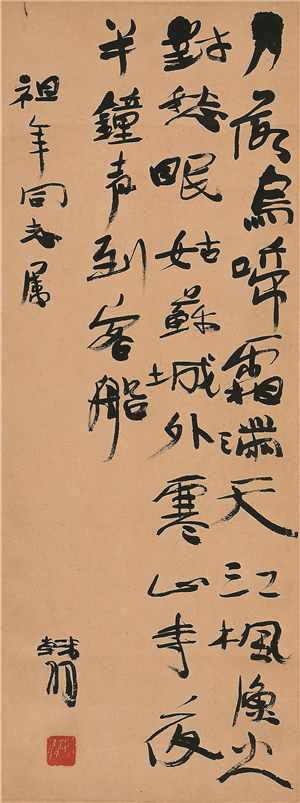 月落烏啼霜滿天江楓漁火
對愁眠姑蘇城外寒山寺夜
半鐘声到客船
祖年同志属
韩羽